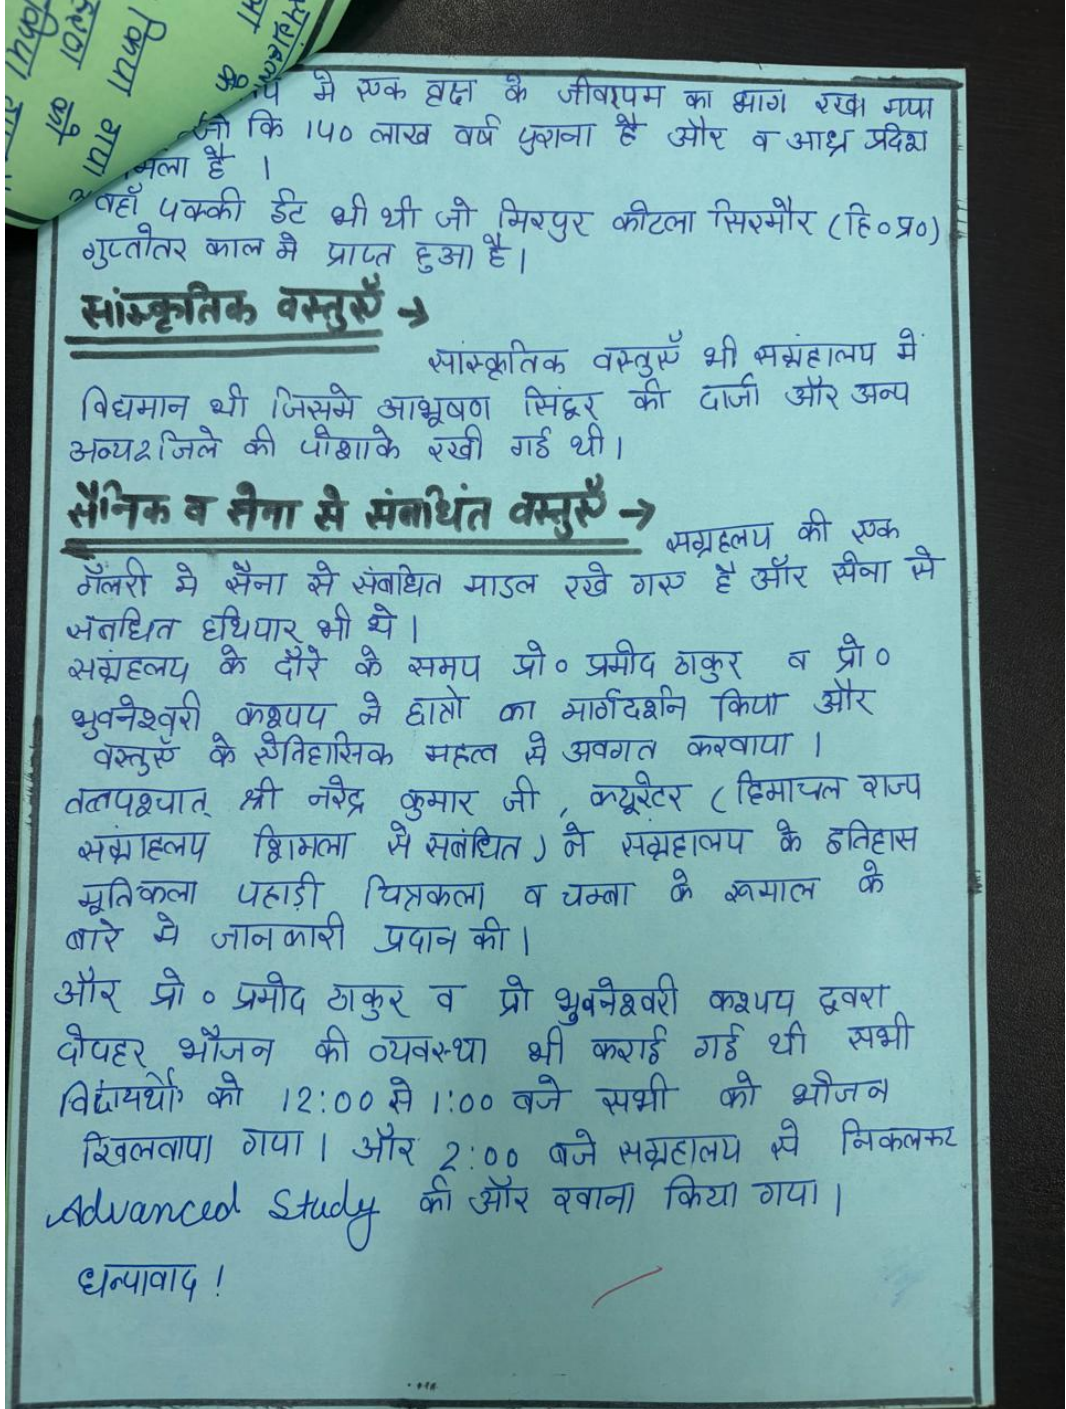 मे एक वृक्ष के जीवाश्म का भाग रखा गया
जो कि 140 लाख वर्ष पुराना है और व आध्र प्रदेश
मिला है ।
वहाँ पक्की ईट भी थी जो मिरपुर कोटला सिरमौर (हि०प्र०)
गुप्तोतर काल मे प्राप्त हुआ है।
सांस्कृतिक वस्तुएँ →
सांस्कृतिक वस्तुएँ भी सग्रंहालय में
विद्यमान थी जिसमे आभूषण सिंदूर की दानी और अन्य
अन्य२ जिले की पोशाके रखी गई थी।
सैनिक व सेना से संबधिंत वस्तुएँ →
सग्रहलय की एक
गैलरी मे सैना से संबधित माडल रखे गए है और सेना से
संबधित हथियार भी थे।
सग्रंहलय के दौरे के समय प्रो० प्रमोद ठाकुर व प्रो०
भुवनेश्वरी कश्यप ने छात्रो का मार्गदर्शन किया और
वस्तुएँ के ऐतिहासिक महत्व से अवगत करवाया ।
तत्तपश्चात् श्री नरेद्र कुमार जी , क्यूरेटर ( हिमाचल राज्य
संग्राहलय शिमला से सबंधित ) ने सग्रंहालय के इतिहास
मूतिकला पहाड़ी चित्रकला व चम्बा के रूमाल के
बारे मे जानकारी प्रदान की ।
और प्रो० प्रमोद ठाकुर व प्रो भुवनेश्वरी कश्यप द्वरा
दोपहर भौजन की व्यवस्था भी कराई गई थी सभी
को 12:00 से 1:00 बजे सभी को भोजन
खिलवाया गया । और 2:00 बजे सग्रहालय से निकलकर
Advanced Study की और रवाना किया गया ।
धन्यावाद !